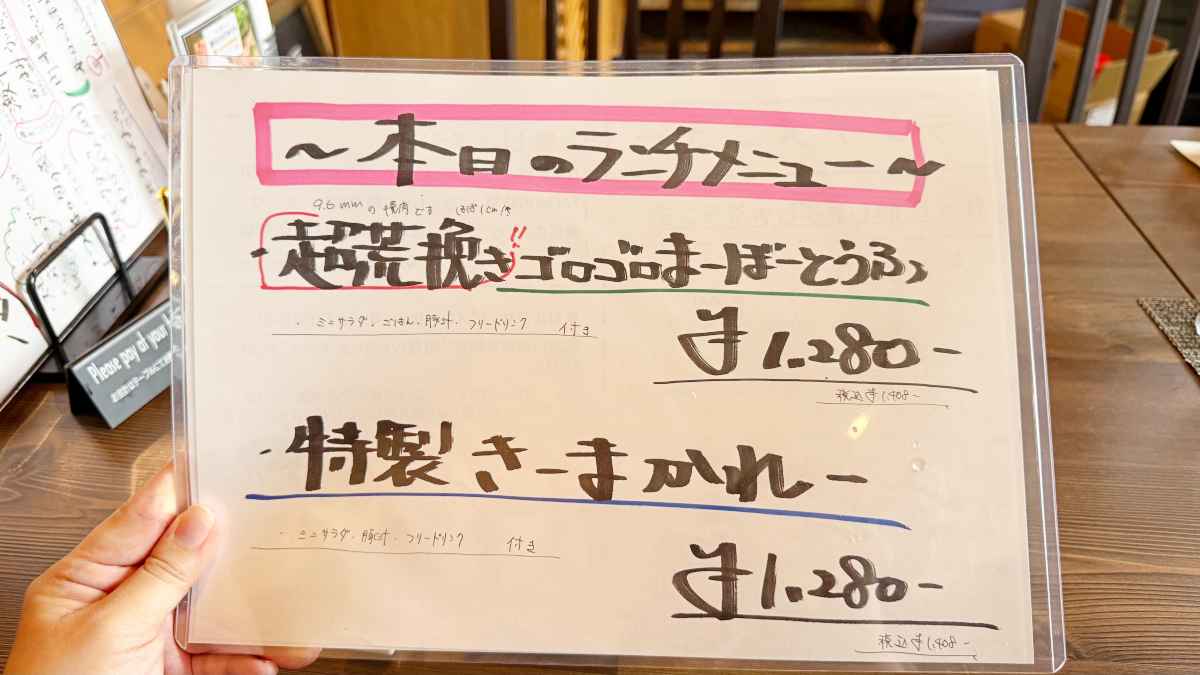 ～本日のランチメニュー～
9.6mmの挽肉です ほぼ1cm!!
・超荒挽き!!ゴロゴロまーぼーとうふ
・ミニサラダ・ごはん・豚汁・フリードリンク 付き
¥1,280-
税込¥1,408-
・特製きーまかれー
・ミニサラダ・豚汁・フリードリンク 付き
¥1,280-
税込¥1,408-
Please pay at your